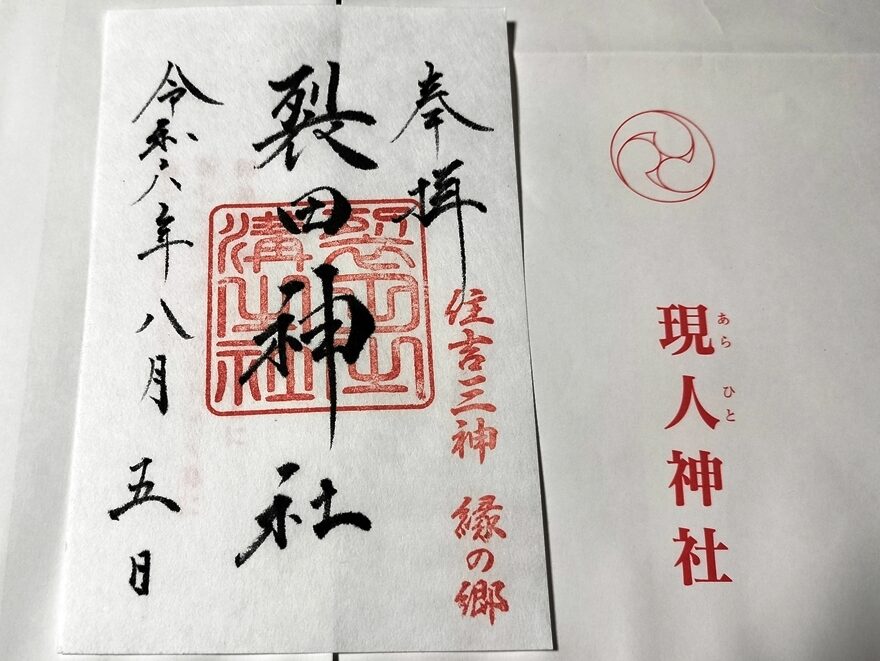 奉拝
住吉三神 縁の郷
裂田神社
裂田之
溝之社
令和六年八月五日
現人神社
あら ひと